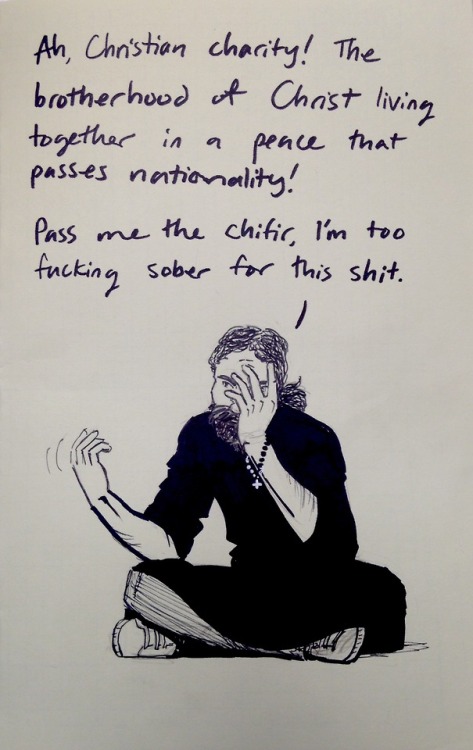 Ah, Christian charity! The
brotherhood of Christ living
together in a peace that
passes nationality!
Pass me the chifir, I'm too
fucking sober for this shit.